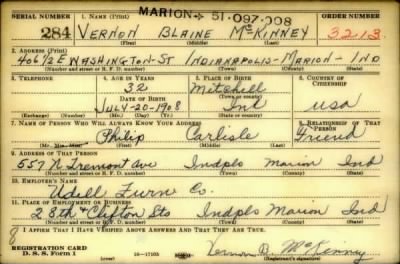 MARION + 51-097,008
SERIAL NUMBER 1. NAME (Print) ORDER NUMBER
284 VERNON BLAINE McKINNEY 3213
(First) (Middle) (Last)
2. ADDRESS (Print)
406½ E WASHINGTON-ST INDIANAPOLIS-MARION-IND
(Number and street or R. F. D. number) (Town) (County) (State)
3. TELEPHONE 4. AGE IN YEARS 5. PLACE OF BIRTH 6. COUNTRY OF CITIZENSHIP
32 Mitchell
DATE OF BIRTH (Town or county)
JULY-20-1908 Ind USA
(Exchange) (Number) (Mo.) (Day) (Yr.) (State or country)
7. NAME OF PERSON WHO WILL ALWAYS KNOW YOUR ADDRESS 8. RELATIONSHIP OF THAT PERSON
Philip Carlisle Friend
(Mr., Mrs., Miss) (First) (Middle) (Last)
9. ADDRESS OF THAT PERSON
557 N Tremont Ave Indpls Marion Ind
(Number and street or R. F. D. number) (Town) (County) (State)
10. EMPLOYER'S NAME
Udell Furn Co.
11. PLACE OF EMPLOYMENT OR BUSINESS
28th & Clifton Sts Indpls Marion Ind
(Number and street or R. F. D. number) (Town) (County) (State)
I AFFIRM THAT I HAVE VERIFIED ABOVE ANSWERS AND THAT THEY ARE TRUE.
REGISTRATION CARD
D. S. S. Form 1 16-17105 Vernon B. McKinney
(Registrant's signature)